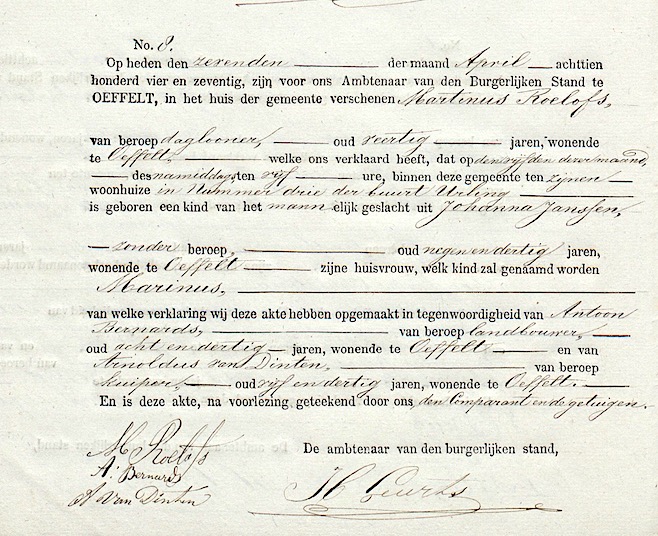 No. 8.
Op heden den zevenden der maand April achttien
honderd vier en zeventig, zijn voor ons Ambtenaar van den Burgerlijken Stand te
OEFFELT, in het huis der gemeente verschenen Martinus Roelofs,
van beroep daglooner, oud veertig jaren, wonende
te Oeffelt, welke ons verklaard heeft, dat op den vijfden dezer maand,
des namiddags ten vijf ure, binnen deze gemeente ten zijnen
woonhuize in Nummer drie der buurt Urling
is geboren een kind van het mannelijk geslacht uit Johanna Janssen,
zonder beroep, oud negen en dertig jaren,
wonende te Oeffelt zijne huisvrouw, welk kind zal genaamd worden
Marinus,
van welke verklaring wij deze akte hebben opgemaakt in tegenwoordigheid van Antoon
Bernards, van beroep landbouwer,
oud acht en dertig jaren, wonende te Oeffelt en van
Arnoldus van Dinten, van beroep
kuiper, oud vijf en dertig jaren, wonende te Oeffelt.
En is deze akte, na voorlezing geteekend door ons, den Comparant en de getuigen.
M Roelofs
De ambtenaar van den burgerlijken stand,
A. Bernards
A Van Dinten
H Geurts